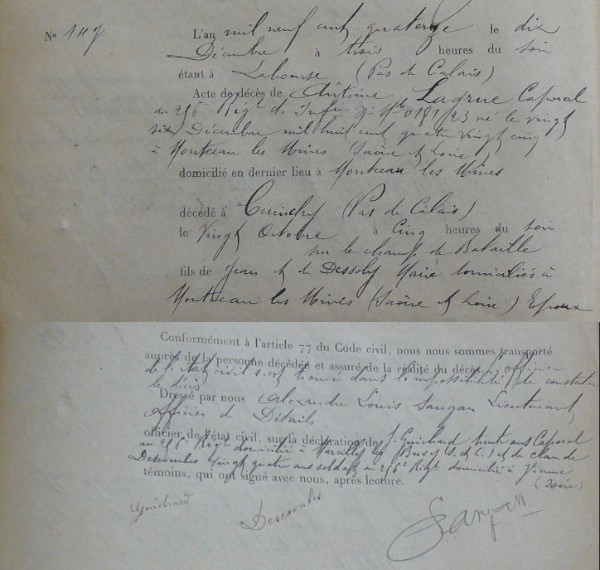 No 147
L'an mil neuf cent quatorze le dix
Décembre à trois heures du soir
étant à Labourse (Pas de Calais)
Acte de décès de Antoine Lagrue Caporal
au 256e Régt d'Infie No Mle 0191/23 né le vingt
six Décembre mil huit cent quatre vingt cinq
à Montceau les Mines (Saône & Loire)
domicilié en dernier lieu à Montceau les Mines
décédé à Cuinchy (Pas de Calais)
le Vingt Octobre à Cinq heures du soir
sur le champ de Bataille
fils de Jean & de Marie domiciliés à
Montceau les Mines (Saône & Loire) Epoux
Conformément à l'article 77 du Code civil, nous nous sommes transporté
auprès de la personne décédée et assuré de la réalité du décès. L'officier
de l'état civil s'est trouvé dans l'impossibilité de constater
le décès
Dressé par nous Alexandre Louis Sangan Lieutenant
Officier de Détails
officier de l'état civil, sur la déclaration de J. Guichard trente ans Caporal
au 256e Régt domicilié à (S. & L.) et de Claude
Descombes vingt quatre ans soldat au 256e Régt domicilié à Vienne
(Isère)
témoins, qui ont signé avec nous, après lecture.
Guichard Descombes Sangan